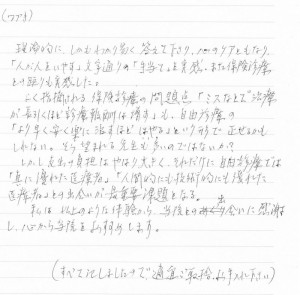 (つづき)
極的に、しかもわかり易く答えて下さり、心のケアともなり、
「人が人をいやす」文字通りの「手当て」を実感。また保険診療
との違りも実感した。
よく指摘される保険診療の問題点「ミスなどで治療
が長引くほど診療報酬は増す」も、自由診療の
「より早く安く楽に治すほどはやる」という形で正せるかも
しれない。そう望まれる先生も多いのではないか?
しかし支出の負担はやはり大きく、それだけに自由診療では
「真に優れた医療者」「人間的にも技術的にも優れた
医療者」との出会いが最重要課題となる。
私は以上のような体験から、当院との出会いに感謝
し、心から当院をお勧めします。
(すべて記しましたので適宜ご取捨、お手入れ下さい)